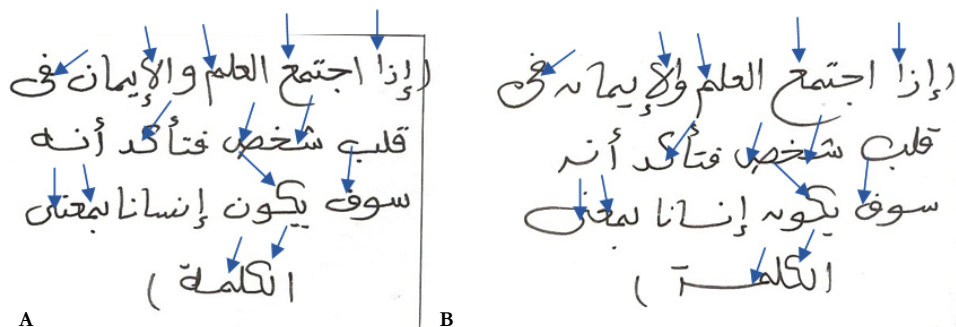 (إذا اجتمع العلم والإيمان فى
قلب شخص فتأكد أنه
سوف يكون إنسانا بمعنى
الكلمة )
A
(إذا اجتمع العلم والإيمان فى
قلب شخص فتأكد أنه
سوف يكون إنسانا بمعنى
الكلمة )
B